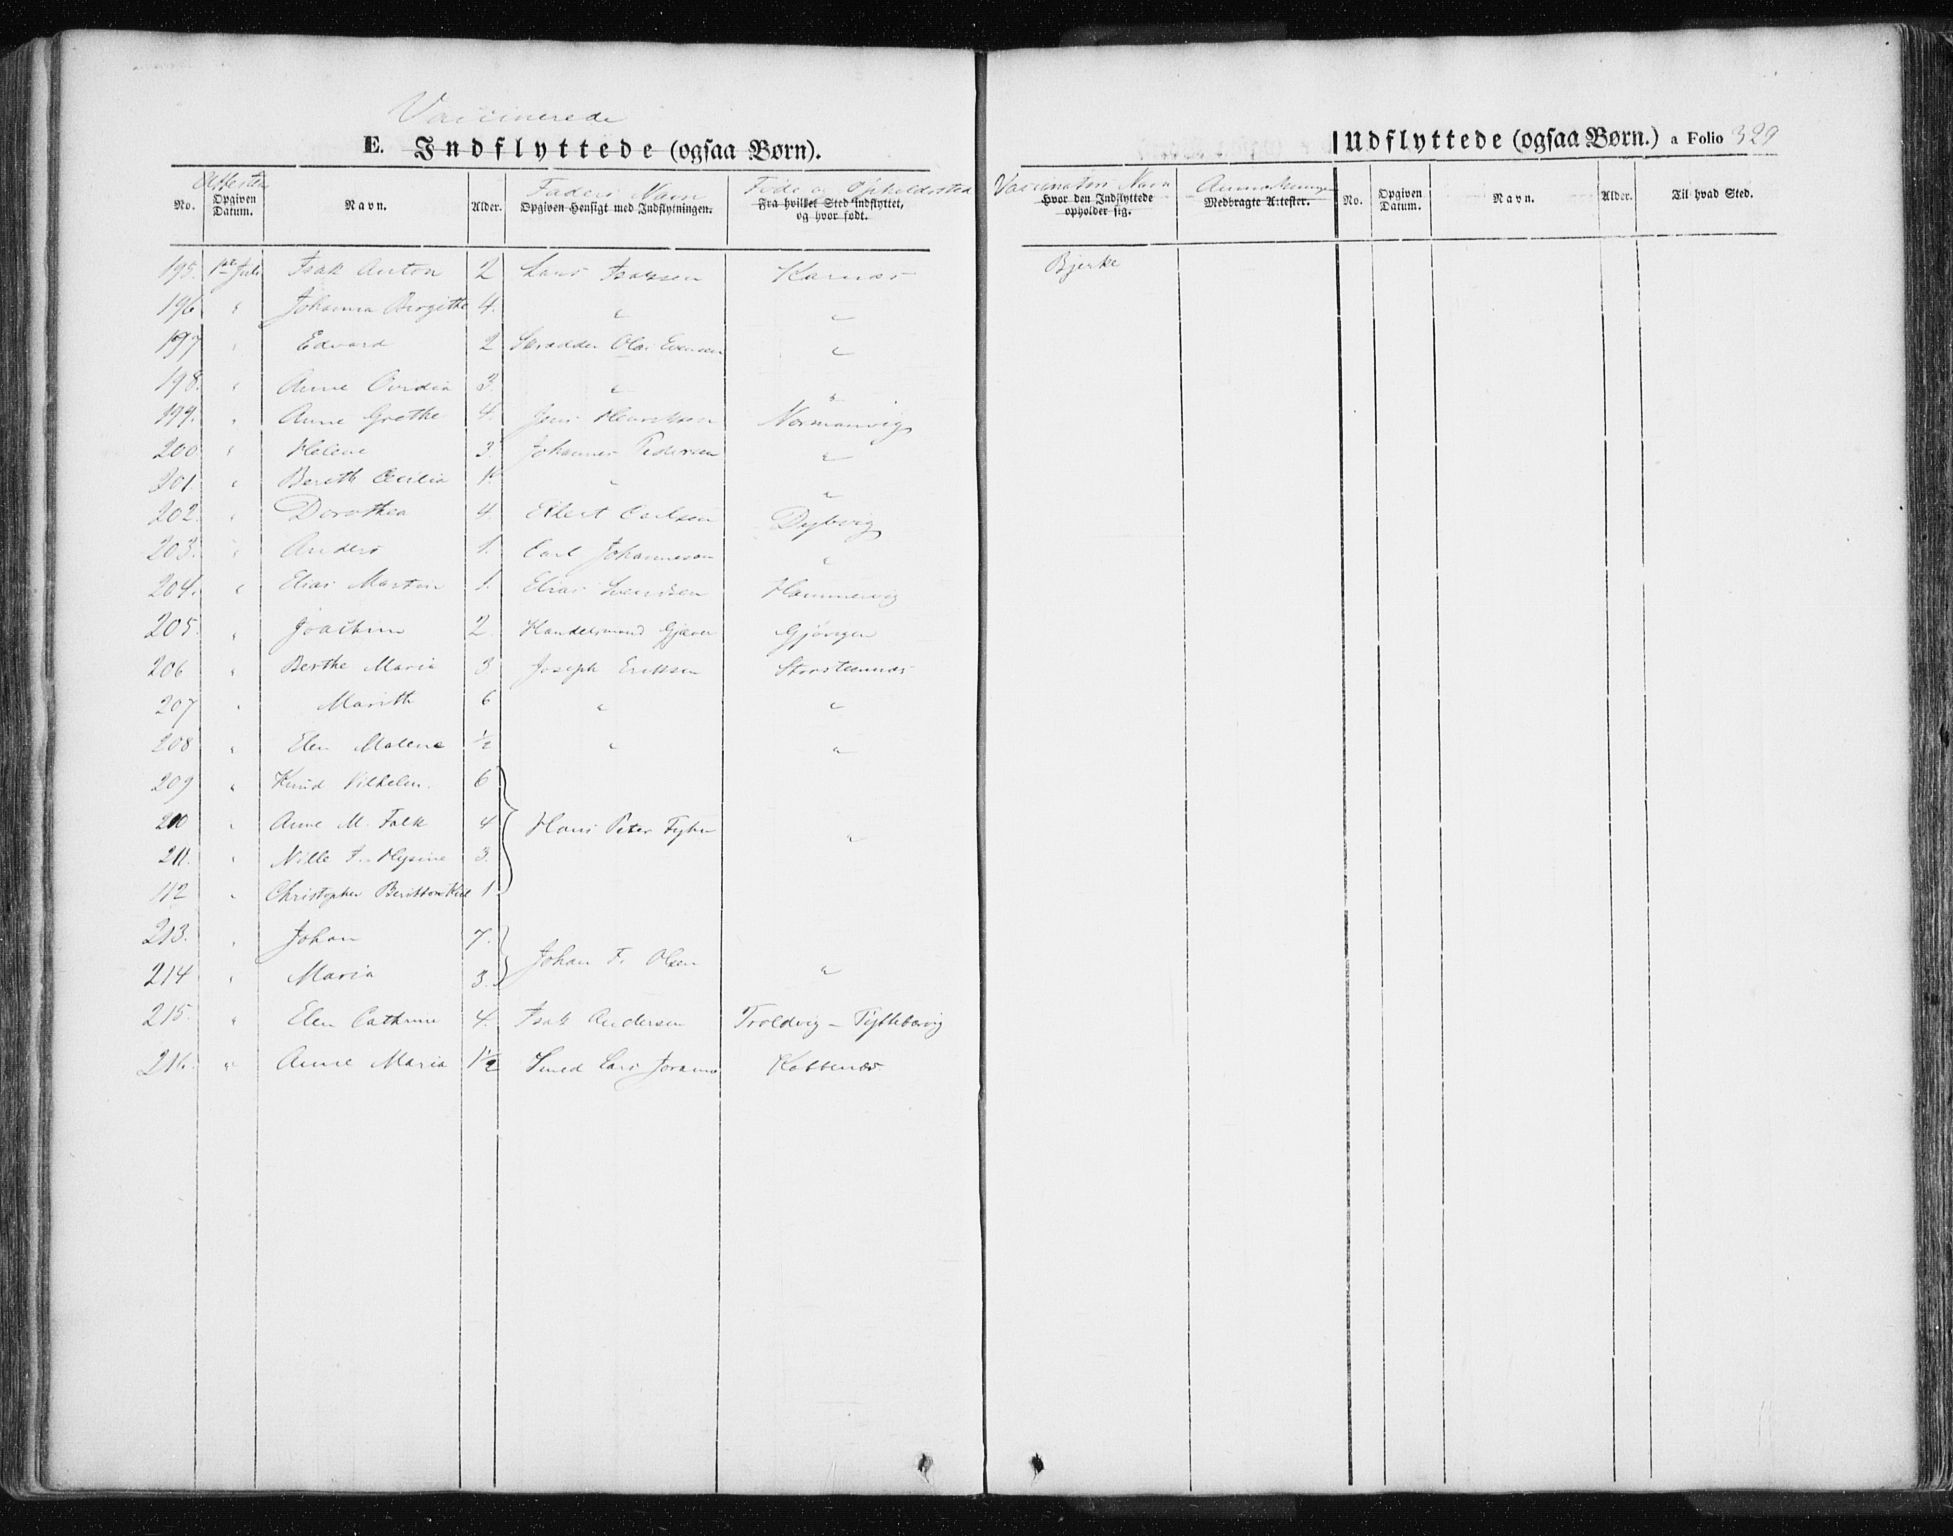 Vaccinerede
E. Indflyttede (ogsaa Børn).
Attestens Faders Navn Føde og Opholdssted
No. Opgiven Datum. Navn. Alder. Opgiven Hensigt med Indflytningen. Fra hvilket Sted indflyttet, og hvor født.
195. 1ste Juli Isak Anton 2 Lars Isaksen Karnæs
196 " Johanna Birgithe 4. " "
197 " Edvard 2 Skrædder Ole "
198. " Anne Ovidia 3. " "
199. " Anne Grethe 4. Jens Henriksen Normanvig
200 " Helene 3. Johannes Pedersen "
201. " Berith Cecilia 1. " "
202. " Dorothea 4. Ellert Carlsen Dybvig
203. " Anders 1. Carl Johannesen "
204. " Elias Martin 1. Elias Svendsen Hammervig
205. " Joachim 2. Handelsmand Gjæver Gjøvigen
206 " Berthe Maria 3 Joseph Eriksen Storsteennæs
207 " Marith 6 " "
208 " Elen Malene ½ " "
209 " Knud Vilhelm. 6
210 " Anne M. Falk 4 Hans Peter "
211. " Nille F. Hysine 3.
112 " Christopher Kiil 1.
213. " Johan 7.
Johan F. Olsen "
214 " Maria 3.
215. " Elen Cathrine 4. Isak Andersen Troldvig – Tyttebærvig
216. " Anne Maria 1½ Smed Lars Kobbenæs
Vaccinators Navn Anmærkninger
Hvor den Indflyttede opholder sig. Medbragte Attester.
Bjerke
Udflyttede (ogsaa Børn.) a Folio 329
No. Opgiven Datum. Navn. Alder. Til hvad Sted.